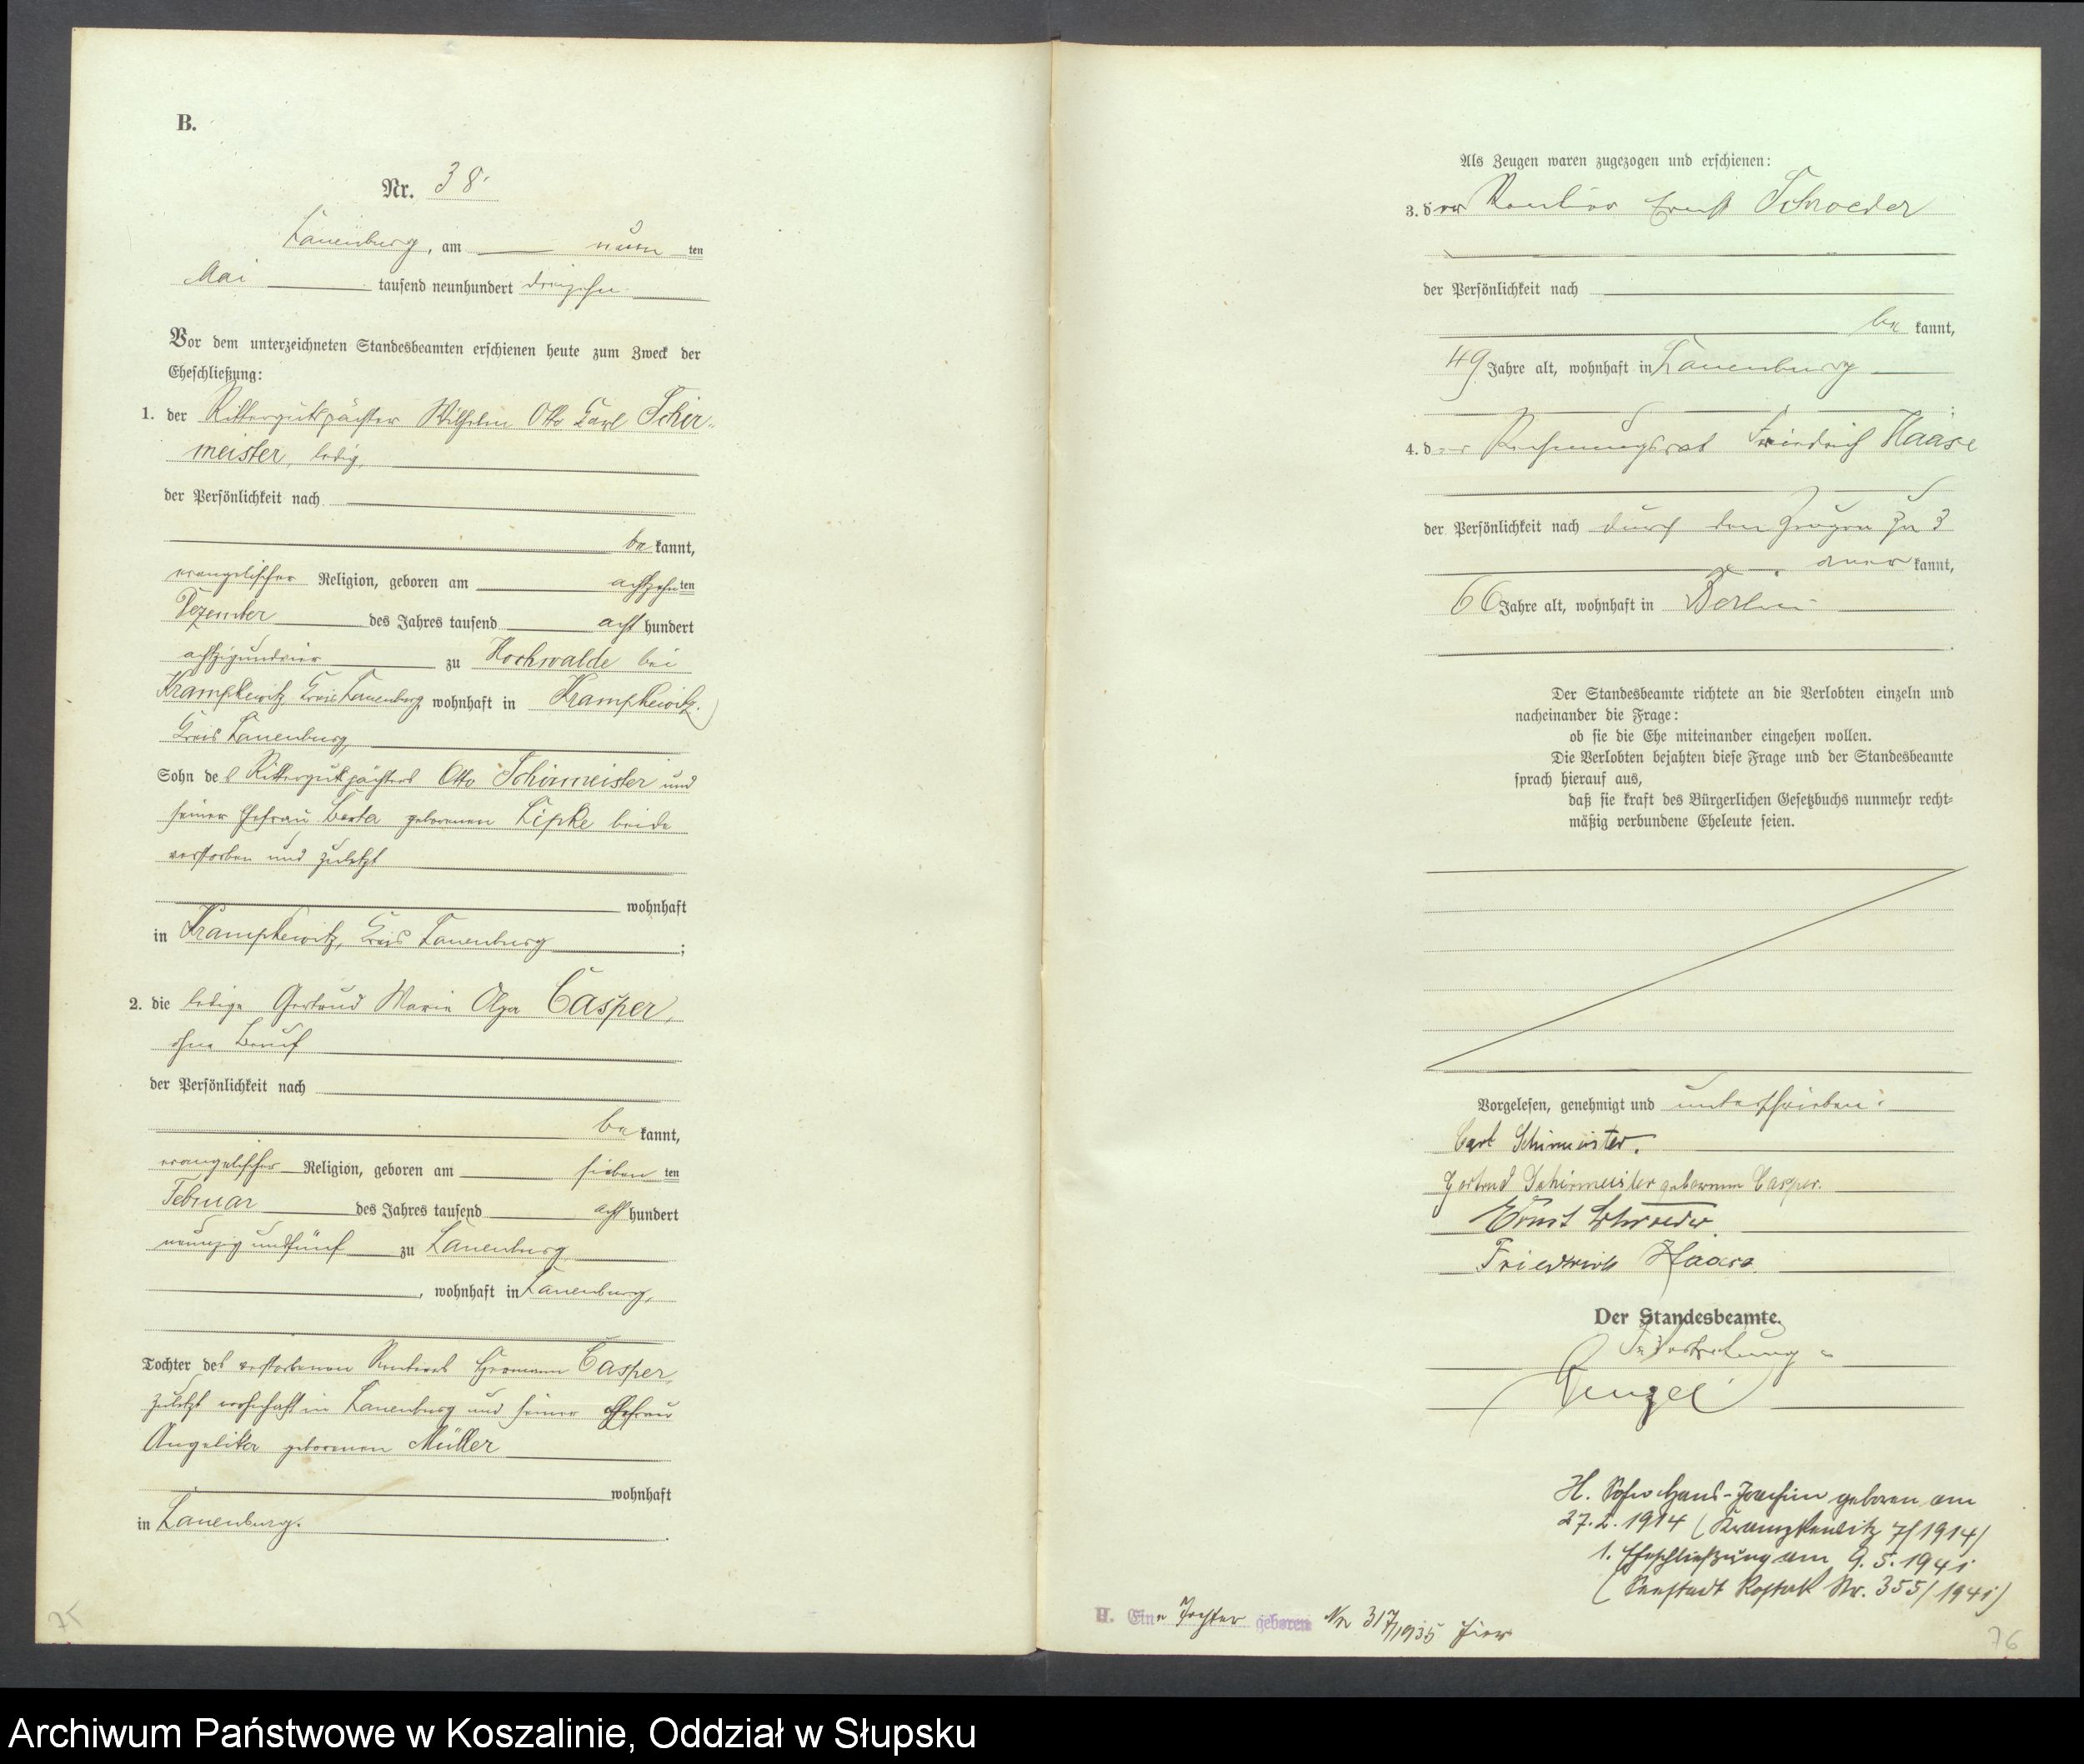 B.
Nr. 38.
Lauenburg, am neun ten
Mai tausend neunhundert dreizehn.
Vor dem unterzeichneten Standesbeamten erschienen heute zum Zweck der
Eheschließung:
1. der Rittergutspächter Wilhelm Otto Carl Schir-
meister, ledig,
der Persönlichkeit nach
be kannt,
evangelischer Religion, geboren am achtzehn ten
Dezember des Jahres tausend acht hundert
achtzigundvier zu Hochwalde bei
Krampkewitz, Kreis Lauenburg wohnhaft in Krampkewitz,
Kreis Lauenburg
Sohn des Rittergutspächters Otto Schirmeister und
seiner Ehefrau Berta geborenen Lipke beide
verstorben und zuletzt
wohnhaft
in Krampkewitz, Kreis Lauenburg ;
2. die ledige Gertrud Marie Olga Casper,
ohne Beruf
der Persönlichkeit nach
be kannt,
evangelischer Religion, geboren am sieben ten
Februar des Jahres tausend acht hundert
neunzig und fünf zu Lauenburg
, wohnhaft in Lauenburg,
Tochter des verstorbenen Rentiers Hermann Casper,
zuletzt wohnhaft in Lauenburg und seiner Ehefrau
Angelika geborenen Müller
wohnhaft
in Lauenburg.
75
Als Zeugen waren zugezogen und erschienen:
3. der Rentier Ernst Schroeder
der Persönlichkeit nach
be kannt,
49 Jahre alt, wohnhaft in Lauenburg
4. der Rechnungsrat Friedrich Haase
der Persönlichkeit nach durch den Zeugen zu 3
aner kannt,
66 Jahre alt, wohnhaft in Berlin
Der Standesbeamte richtete an die Verlobten einzeln und
nacheinander die Frage:
ob sie die Ehe miteinander eingehen wollen.
Die Verlobten bejahten diese Frage und der Standesbeamte
sprach hierauf aus,
daß sie kraft des Bürgerlichen Gesetzbuchs nunmehr recht-
mäßig verbundene Eheleute seien.
Vorgelesen, genehmigt und unterschrieben:
Carl Schirmeister.
Gertrud Schirmeister geborenen Casper.
Ernst Schroeder.
Friedrich Haase.
Der Standesbeamte.
In Vertretung
H. Sohn Hans-Joachim geboren am
27.2.1914 (Krampkewitz 7/1914)
1. Eheschließung am 9.5.1941
(Seestadt Rostock Nr. 355/1941)
H. Eine Tochter geboren Nr 317/1935 hier
76
Archiwum Państwowe w Koszalinie, Oddział w Słupsku